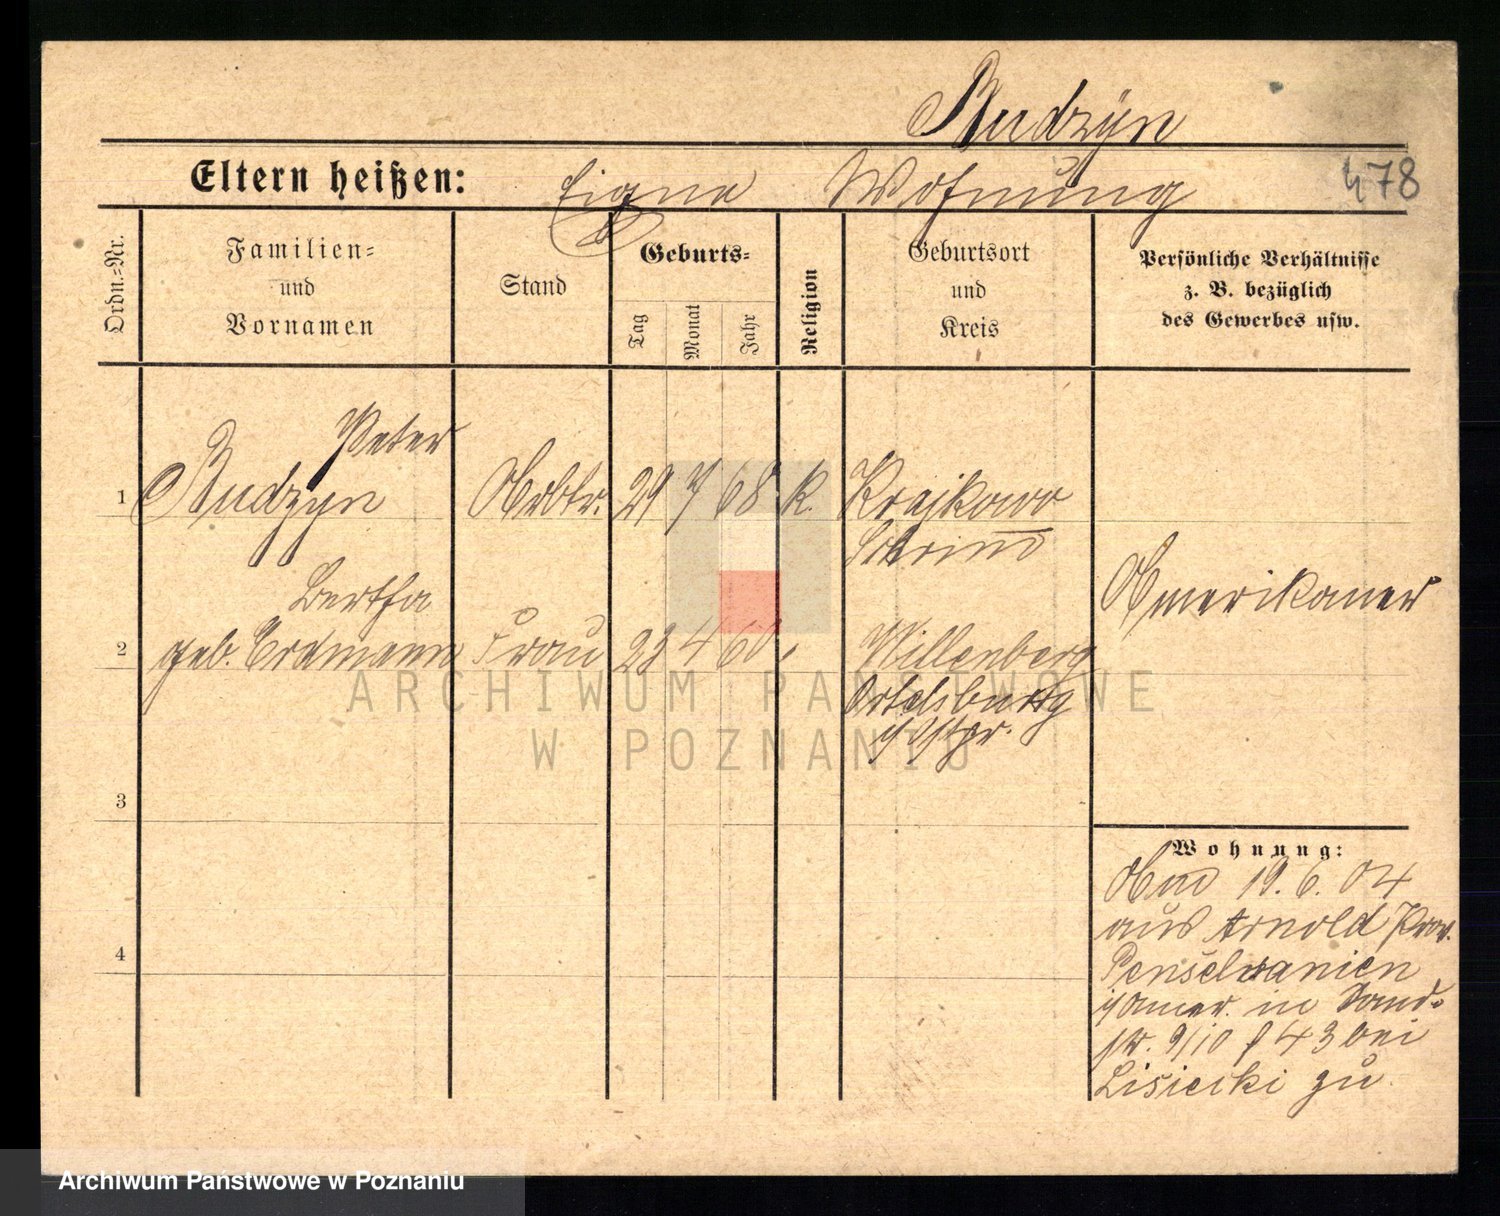 Budzÿn
Eltern heißen: Eigne Wohnung
478
Ordn.=Nr.
Familien=
und
Vornamen
Stand
Geburts=
Tag
Monat
Jahr
Religion
Geburtsort
und
Kreis
Persönliche Verhältnisse
z. B. bezüglich
des Gewerbes usw.
Peter
1 Budzyn Arbtr. 29 7 68 k. Krajkowo
Schrimm
Bertha
Amerikaner
2 geb. Erdmann Frau 23 4 60 Willenberg
Ortelsburg
Ostpr.
3
4
Wohnung:
Am 19. 6. 04
aus Arnold Prov.
Penselvanien
in Sand=
str. 9/10 43 bei
Lisiecki zu
ARCHIWUM PAŃSTWOWE
W POZNANIU
Archiwum Państwowe w Poznaniu